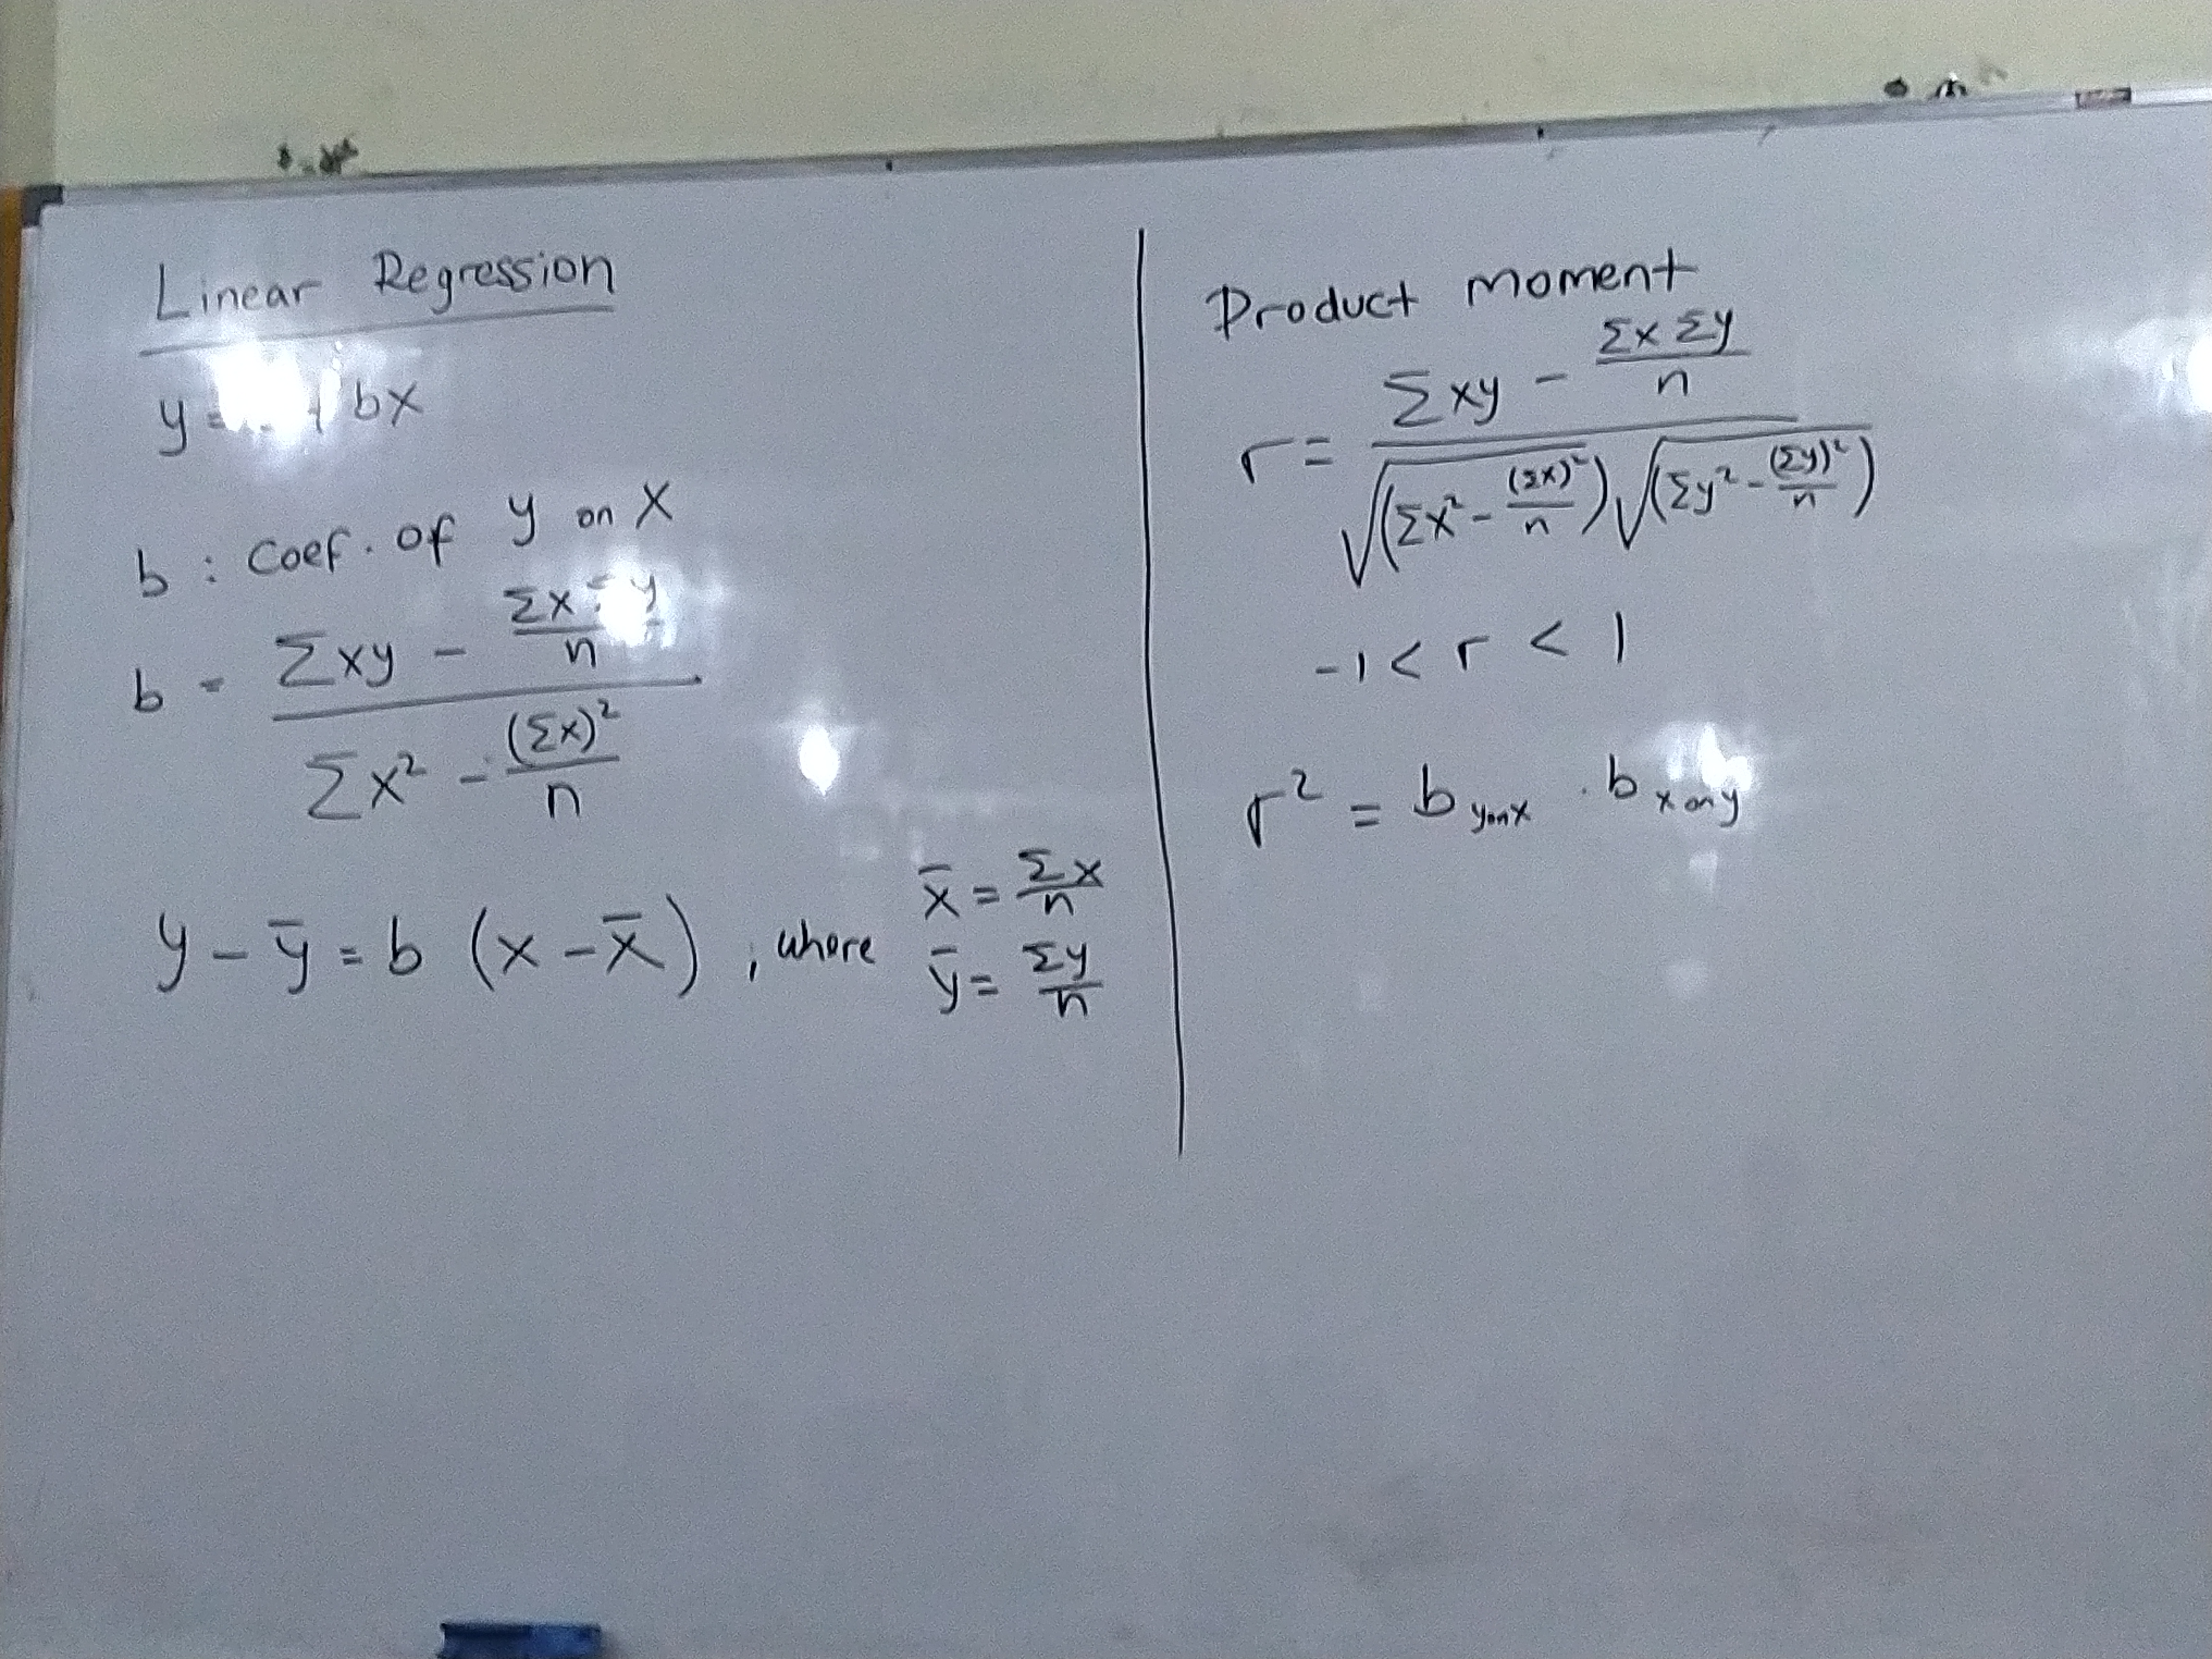 Linear Regression
y = + bx
b : Coef. of y on x
b = (Σxy - (Σx y)/n) / (Σx² - (Σx)²/n)
y - ȳ = b (x - x̄) , where x̄ = Σx/n
ȳ = Σy/n
Product moment
r = (Σxy - (Σx Σy)/n) / (√(Σx² - (Σx)²/n) √(Σy² - (Σy)²/n))
-1 < r < 1
r² = b y on x . b x on y